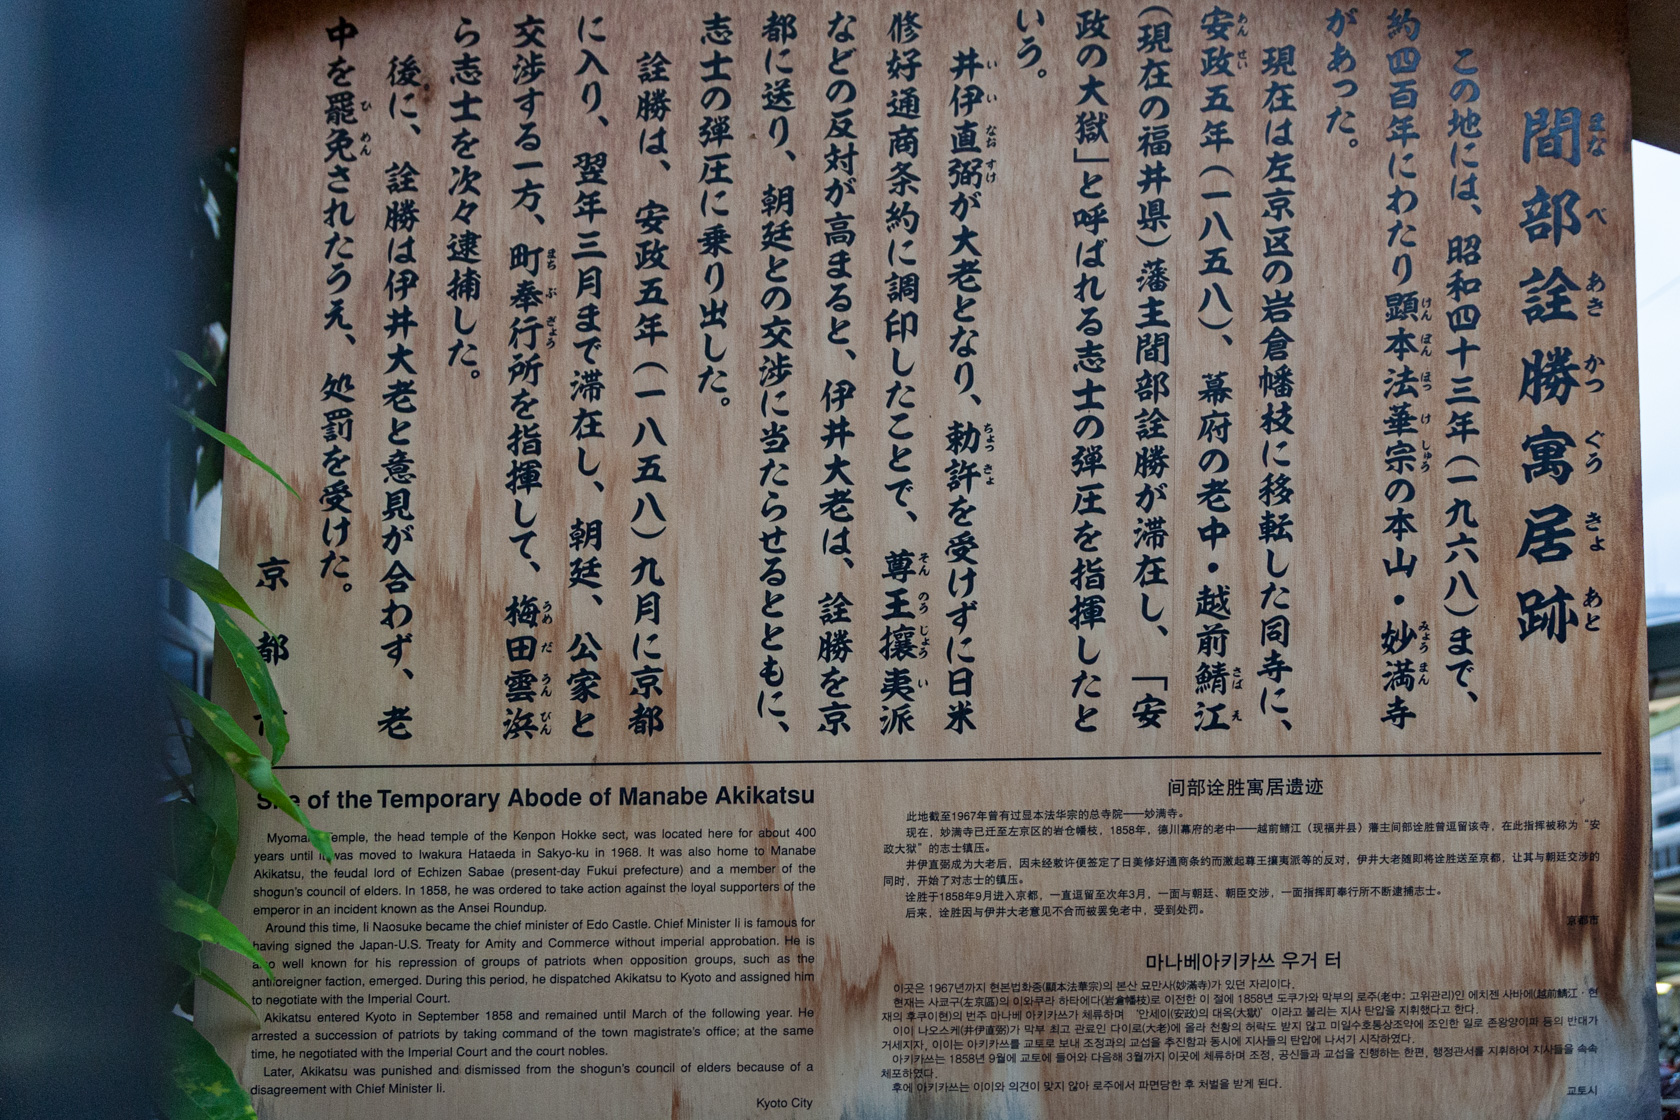 間部詮勝寓居跡
まなべあきかつぐうきょあと
この地には、昭和四十三年(一九六八)まで、
約四百年にわたり顕本法華宗の本山・妙満寺
けんぽんほっけしゅう
みょうまん
があった。
現在は左京区の岩倉幡枝に移転した同寺に、
安政五年(一八五八)、幕府の老中・越前鯖江
あんせい
さばえ
(現在の福井県)藩主間部詮勝が滞在し、「安
政の大獄」と呼ばれる志士の弾圧を指揮したと
いう。
井伊直弼が大老となり、勅許を受けずに日米
いいなおすけ
ちょっきょ
修好通商条約に調印したことで、尊王攘夷派
そんのうじょうい
などの反対が高まると、伊井大老は、詮勝を京
都に送り、朝廷との交渉に当たらせるとともに、
志士の弾圧に乗り出した。
詮勝は、安政五年(一八五八)九月に京都
に入り、翌年三月まで滞在し、朝廷、公家と
交渉する一方、町奉行所を指揮して、梅田雲浜
まちぶぎょう
うめだうんぴん
ら志士を次々逮捕した。
後に、詮勝は伊井大老と意見が合わず、老
中を罷免されたうえ、処罰を受けた。
ひめん
京都市
Site of the Temporary Abode of Manabe Akikatsu
Myoman Temple, the head temple of the Kenpon Hokke sect, was located here for about 400
years until it was moved to Iwakura Hataeda in Sakyo-ku in 1968. It was also home to Manabe
Akikatsu, the feudal lord of Echizen Sabae (present-day Fukui prefecture) and a member of the
shogun's council of elders. In 1858, he was ordered to take action against the loyal supporters of the
emperor in an incident known as the Ansei Roundup.
Around this time, Ii Naosuke became the chief minister of Edo Castle. Chief Minister Ii is famous for
having signed the Japan-U.S. Treaty for Amity and Commerce without imperial approbation. He is
also well known for his repression of groups of patriots when opposition groups, such as the
antiforeigner faction, emerged. During this period, he dispatched Akikatsu to Kyoto and assigned him
to negotiate with the Imperial Court.
Akikatsu entered Kyoto in September 1858 and remained until March of the following year. He
arrested a succession of patriots by taking command of the town magistrate's office; at the same
time, he negotiated with the Imperial Court and the court nobles.
Later, Akikatsu was punished and dismissed from the shogun's council of elders because of a
disagreement with Chief Minister Ii.
Kyoto City
间部诠胜寓居遗迹
此地截至1967年曾有过显本法华宗的总寺院——妙满寺。
现在，妙满寺已迁至左京区的岩仓幡枝，1858年，德川幕府的老中——越前鲭江（现福井县）藩主间部诠胜曾逗留该寺，在此指挥被称为“安
政大狱”的志士镇压。
井伊直弼成为大老后，因未经敕许便签定了日美修好通商条约而激起尊王攘夷派等的反对，伊井大老随即将诠胜送至京都，让其与朝廷交涉的
同时，开始了对志士的镇压。
诠胜于1858年9月进入京都，一直逗留至次年3月，一面与朝廷、朝臣交涉，一面指挥町奉行所不断逮捕志士。
后来，诠胜因与伊井大老意见不合而被罢免老中，受到处罚。
京都市
마나베아키카쓰 우거 터
이곳은 1967년까지 현본법화종(顯本法華宗)의 본산 묘만사(妙滿寺)가 있던 자리이다.
현재는 사쿄구(左京區)의 이와쿠라 하타에다(岩倉幡枝)로 이전한 이 절에 1858년 도쿠가와 막부의 로주(老中: 고위관리)인 에치젠 사바에(越前鯖江・현
재의 후쿠이현)의 번주 마나베 아키카쓰가 체류하며 '안세이(安政)의 대옥(大獄)' 이라고 불리는 지사 탄압을 지휘했다고 한다.
이이 나오스케(井伊直弼)가 막부 최고 관료인 다이로(大老)에 올라 천황의 허락도 받지 않고 미일수호통상조약에 조인한 일로 존왕양이파 등의 반대가
거세지자, 이이는 아키카쓰를 교토로 보내 조정과의 교섭을 추진함과 동시에 지사들의 탄압에 나서기 시작하였다.
아키카쓰는 1858년 9월에 교토에 들어와 다음해 3월까지 이곳에 체류하며 조정, 공신들과 교섭을 진행하는 한편, 행정관서를 지휘하여 지사들을 속속
체포하였다.
후에 아키카쓰는 이이와 의견이 맞지 않아 로주에서 파면당한 후 처벌을 받게 된다.
교토시